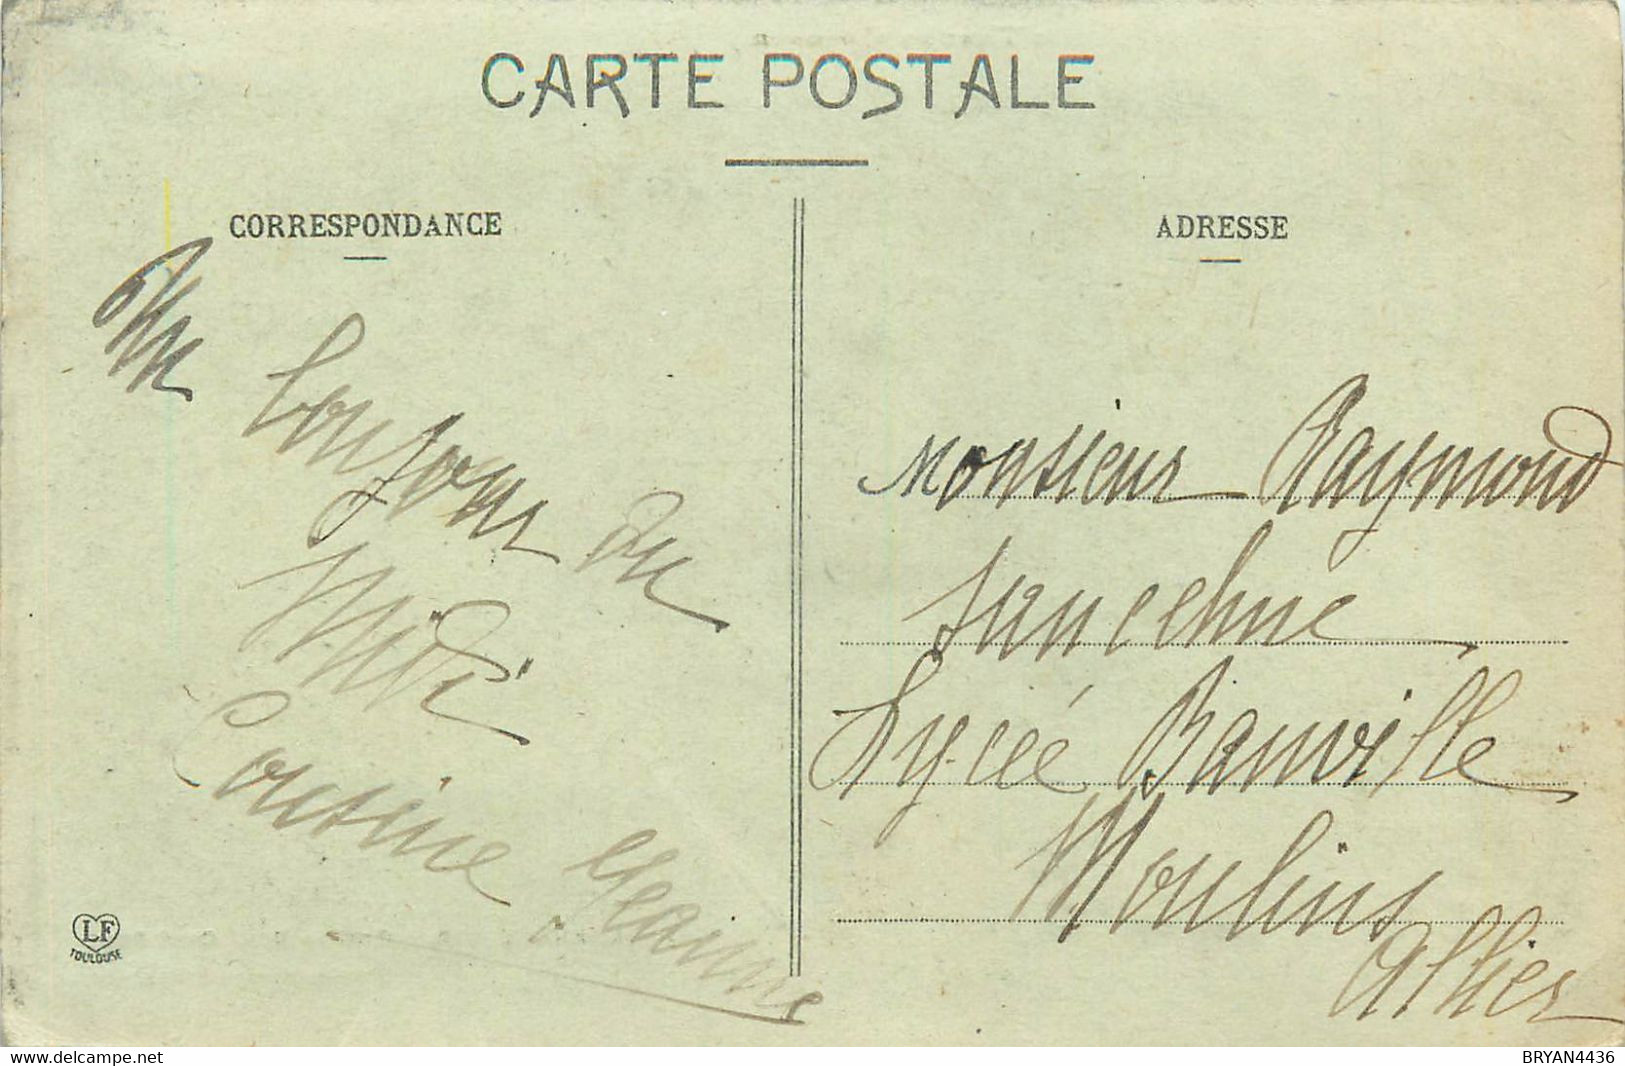 CARTE POSTALE
CORRESPONDANCE
Un bonjour du
Midi
Cousine Jeanne
LF
TOULOUSE
ADRESSE
Monsieur Raymond
Lycée Banville
Moulins
Allier
www.delcampe.net
BRYAN4436